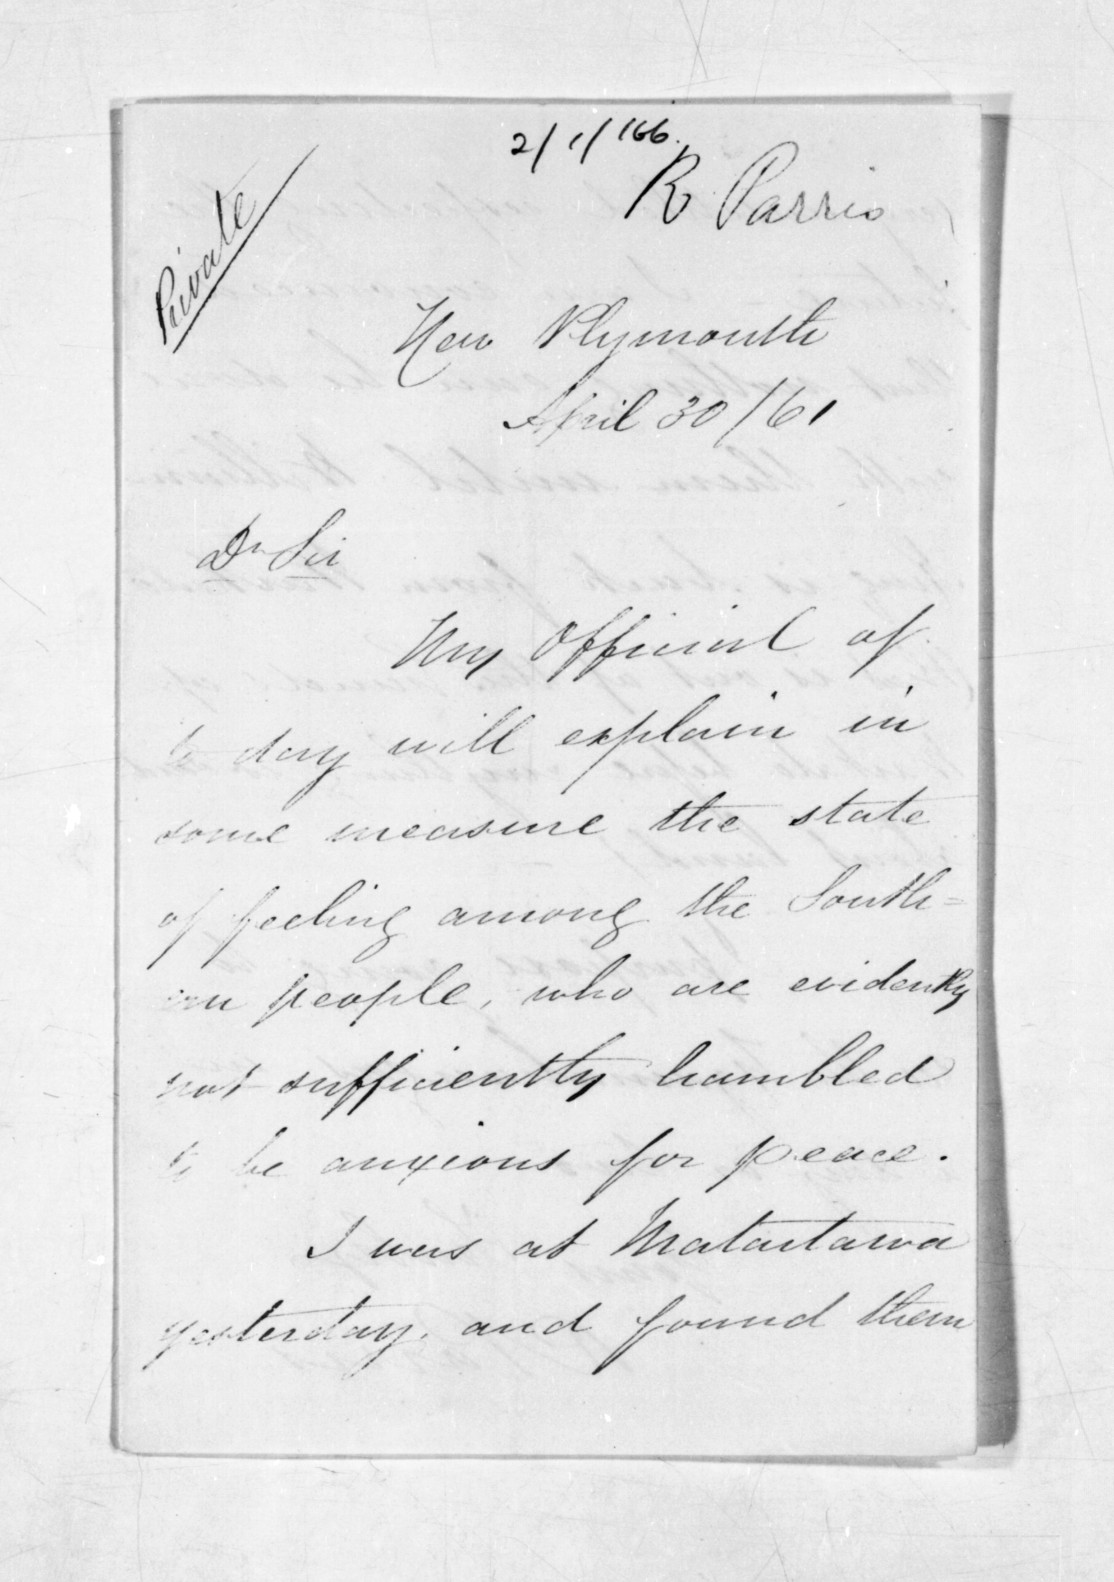 2/1/166.
R Parris
Private
New Plymouth
April 30/61
Dr Sir
My Official of
to day will explain in
some measure the state
of feeling among the South=
ern people, who are evidently
not sufficiently humbled
to be anxious for peace.
I was at Mataitawa
yesterday. and found them